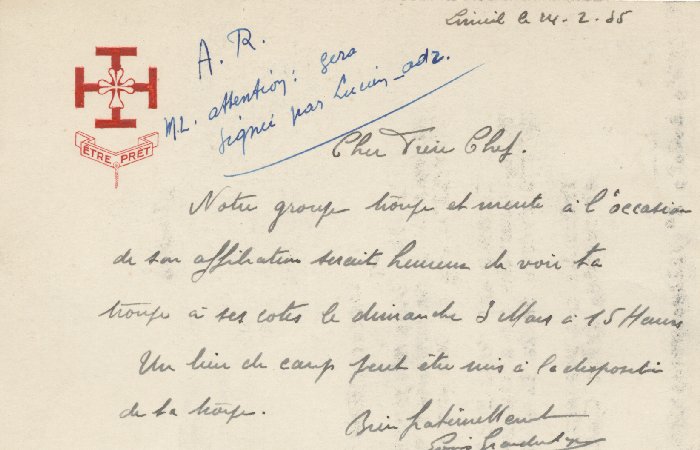 le 14. 2. 35
A. R.
M.L. attention: sera
signée par Lucien_adz.
ÊTRE PRÊT
Cher Frère Chef.
Notre groupe troupe et meute à l'occasion
de son affiliation serait heureux de voir ta
troupe à ses cotés le dimanche 3 Mars à 15 Heures
Un lieu de camp peut être mis à la disposition
de ta troupe.
Bien fraternellement
Louis